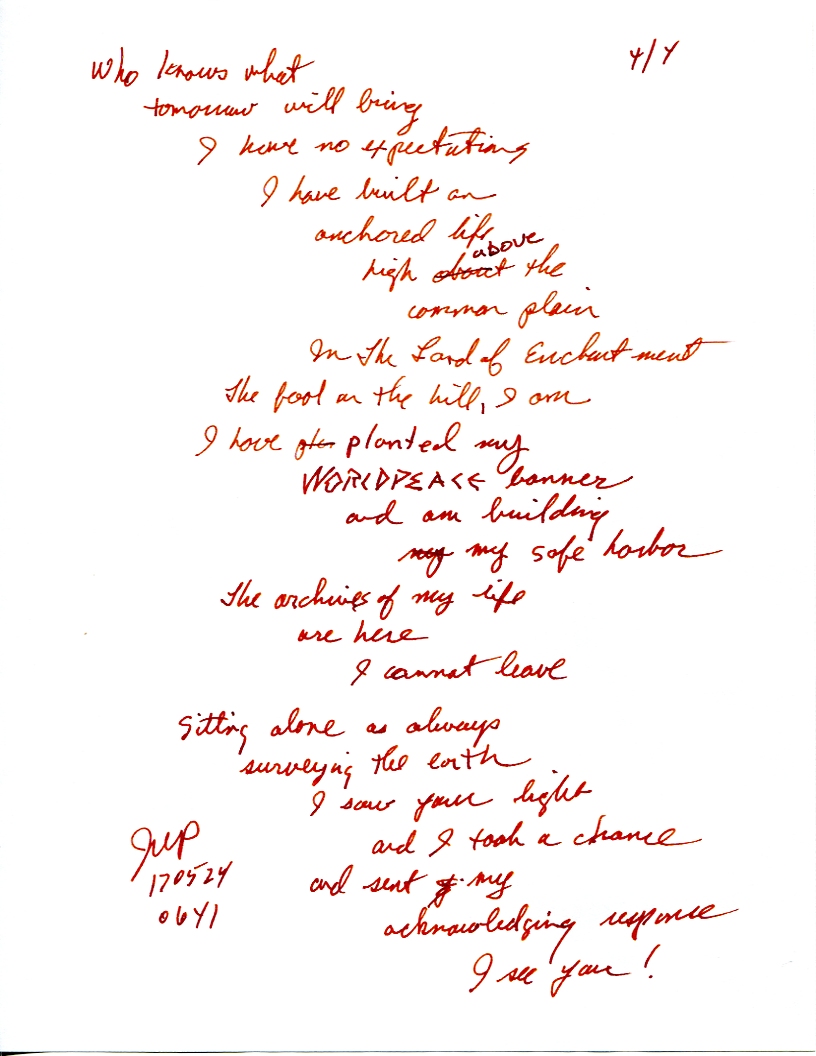 4/4
Who knows what
tomorrow will bring
I have no expectations
I have built an
anchored life
above
high about the
common plain
In the Land of Enchantment
The fool on the hill, I am
I have planted my
WORLDPEACE banner
and am building
my my safe harbor
The archives of my life
are here
I cannot leave
Sitting alone as always
surveying the earth
I saw your light
and I took a chance
and sent my
acknowledging response
I see you!
JWP
170524
0641